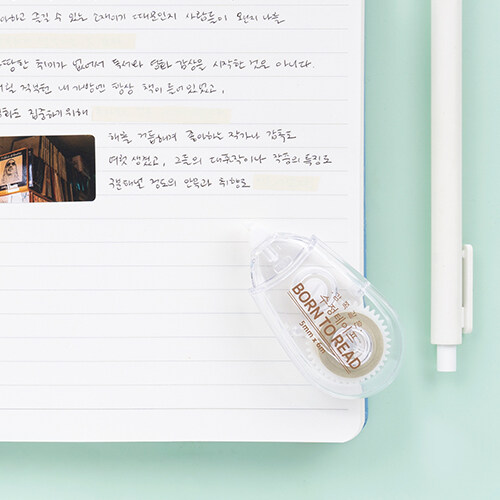 하고 즐길 수 있는 소재이기 때문인지 사람들이 오면의 나를
땅한 취미가 없어서 독서와 영화 감상을 시작한 것은 아니다.
내 가방엔 항상 책이 들어있었고,
집중하기 위해
해를 거듭해며 좋아하는 작가나 감독도
여럿 생겼고, 그들의 대표작이나 작품의 특징도
정도의 안목과 취향도
수정테이프
BORN TO READ
5mm x 6m